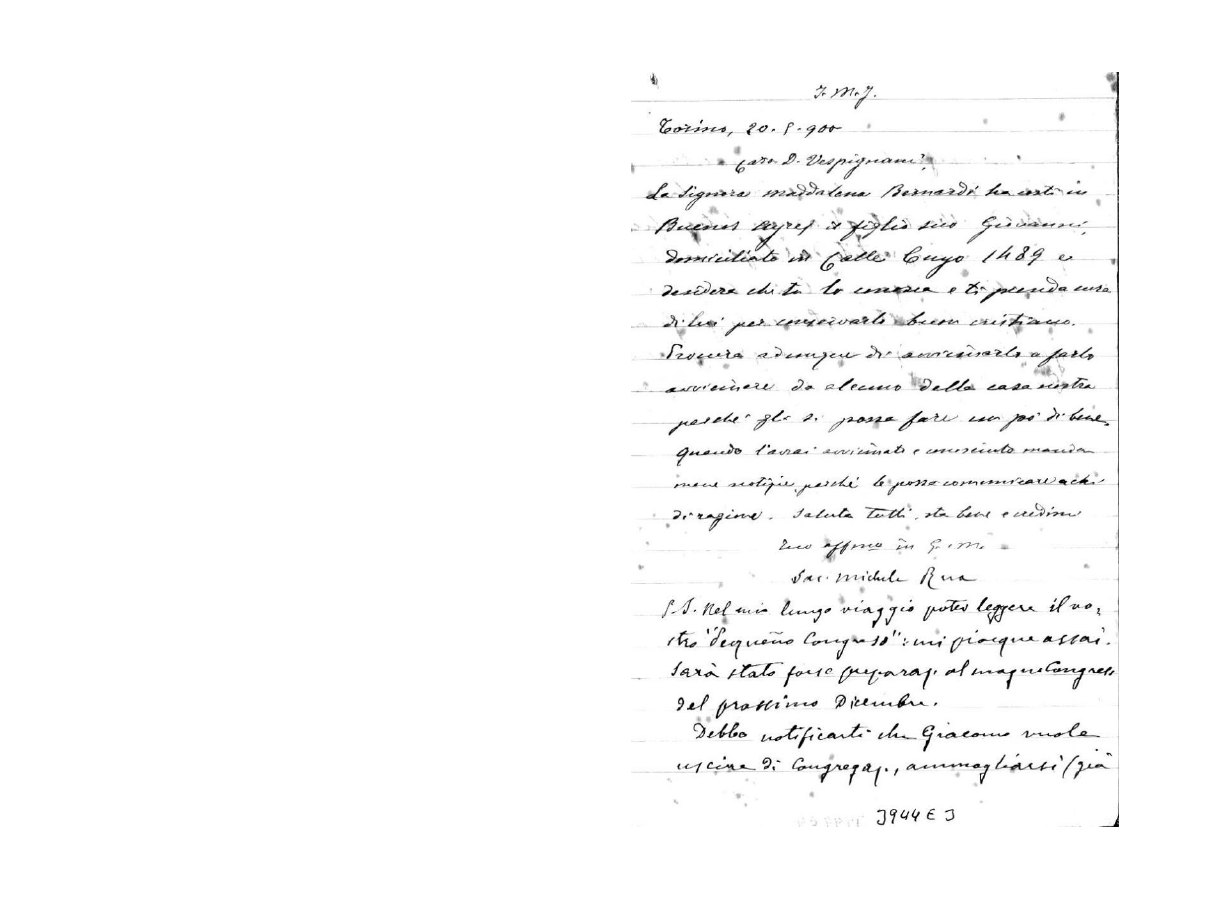 J. M. J.
Torino, 20. 5. 900
Caro D. Vespignani,
La Signora Maddalena Bernardi ha costì in
Buenos Ayres il figlio suo Giovanni,
domiciliato in Calle Cuyo 1489 e
desidera che tu lo conosca e ti prenda cura
di lui per conservarlo buon cristiano.
Procura adunque di avvicinarlo o farlo
avvicinare da alcuno della casa nostra
perché gli si possa fare un po' di bene.
Quando l'avrai avvicinato e conosciuto manda
mene notizie perché le possa comunicare a chi
di ragione. Saluta tutti, sta bene e credimi
Tuo affmo in G. M.
Sac. Michele Rua
P.S. Nel mio lungo viaggio potei leggere il vo-
stro "Pequeño Congreso": mi piacque assai.
Sarà stato forse preparaz. al magno Congresso
del prossimo Dicembre.
Debbo notificarti che Giacomo vuole
uscire di Congregaz., ammogliarsi (già
J944 E J